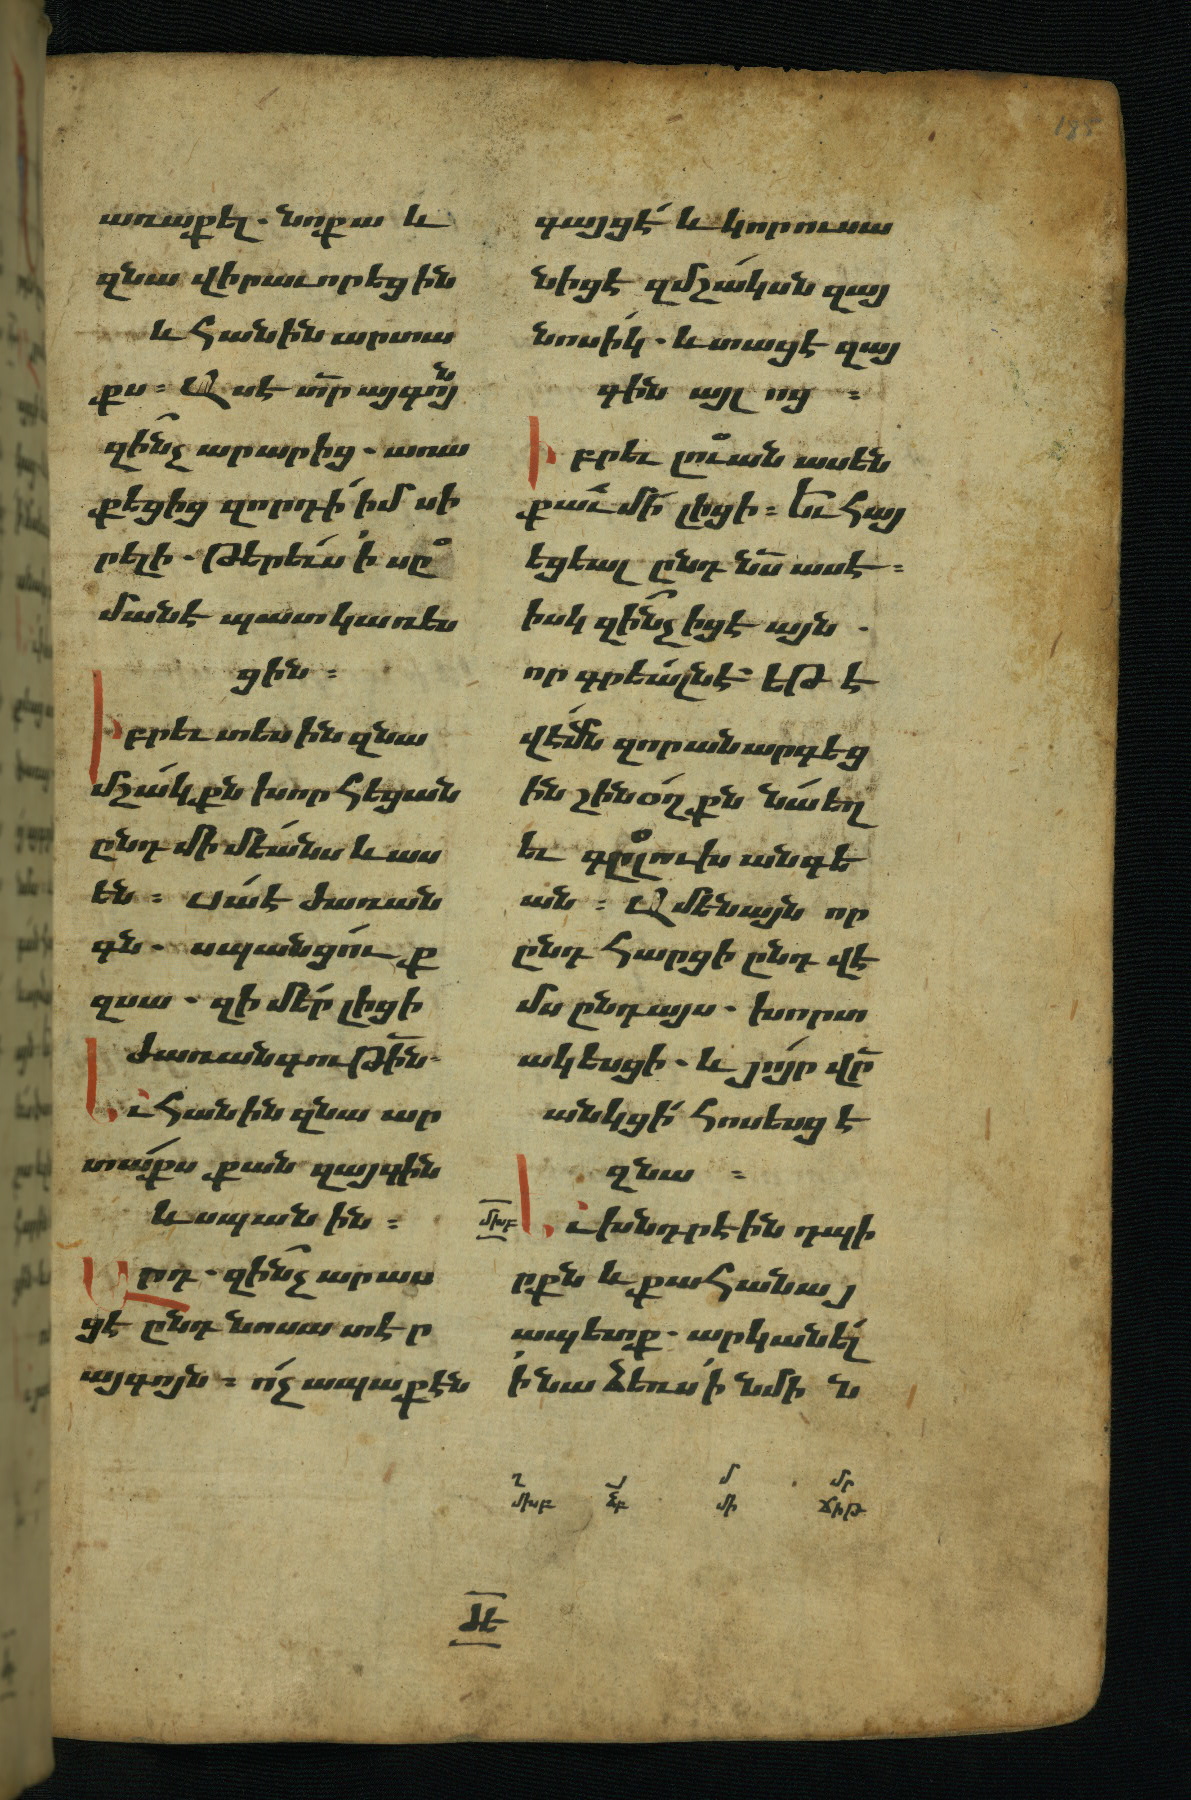 առաքել. նոքա և
զնա վիրաւորեցին
և հանին արտա
քս։ Ասէ տր այգոյն
զինչ արարից. առա
քեցից զորդի իմ սի
րելի. թերեւս ի սը
մանէ պատկառես
ցին։
Իբրեւ տեսին զնա
մշակքն խորհեցան
ընդ միմեանս և աս
են։ Սա է ժառան
գն. սպանցուք
զսա. զի մեր լիցի
ժառանգութին.
Եւ հանին զնա ար
տաքս քան զայգին
և սպանին։
Արդ. զինչ արաս
ցէ ընդ նոսա տէր
այգոյն։ ոչ ապաքէն
գայցէ և կորուսա
նիցէ զմշակսն զայ
նոսիկ. և տացէ զայ
գին այլ ոց։
Իբրեւ լուան ասեն
քաւ մի լիցի։ Եւ հայ
եցեալ ընդ նս ասէ։
իսկ զինչ իցէ այն.
որ գրեալն է. եթ է
վէմն զոր անարգեց
ին շինօղքն նա եղ
եւ գլըլուխ անգե
ան։ Ամենայն որ
ընդ հարցի ընդ վէ
մս ընդայս. խորտ
ակեսցի. և յոյր վր
անկցի հոսեսցէ
զնա։
մխբ
Եւ խնդրէին դպի
րքն և քահանայ
ապետք. արկանել
ի նա ձեռս ի նմի ն
ղ յ մ մր
մխբ ձբ մի ճիթ
մէ
185